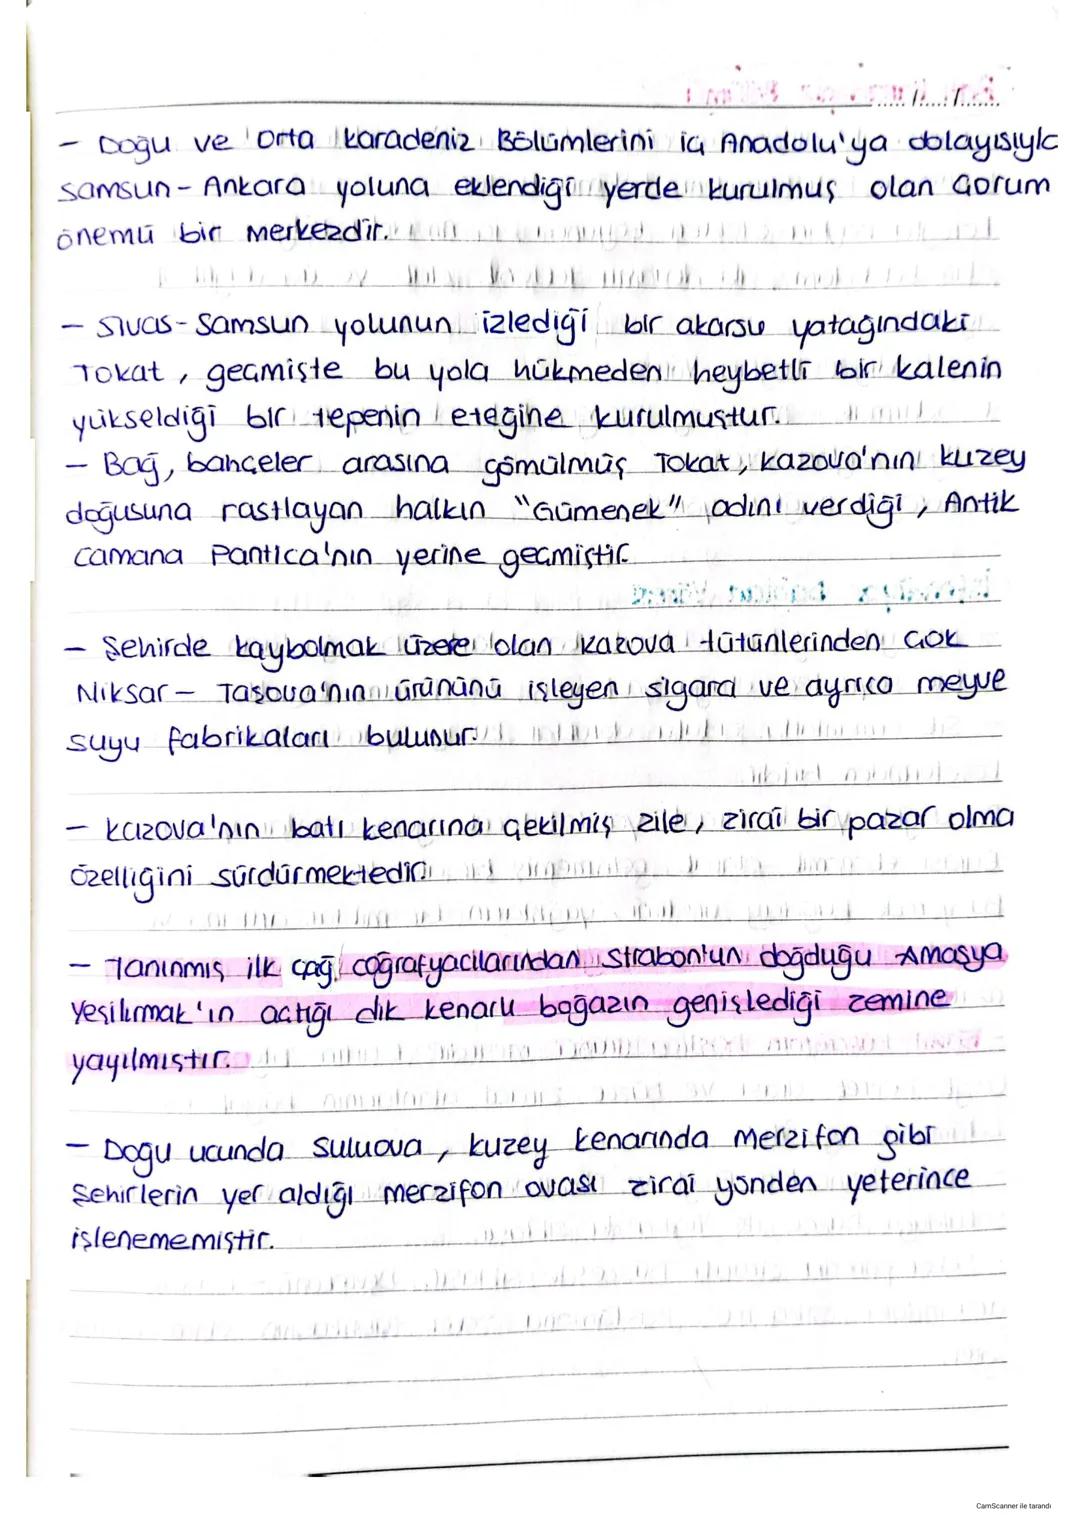 - Doğu ve Orta Karadeniz Bölümlerini iç Anadolu'ya dolayısıyla
Samsun - Ankara yoluna eklendiği yerde kurulmuş olan Çorum
önemli bir merkezdir.
- Sivas - Samsun yolunun izlediği bir akarsu yatağındaki
Tokat, geçmişte bu yola hükmeden heybetli bir kalenin
yükseldiği bir tepenin eteğine kurulmuştur.
- Bağ, bahçeler arasına gömülmüş Tokat, Kazova'nın kuzey
doğusuna rastlayan halkın "Gümenek" adını verdiği, Antik
Camana Pantica'nın yerine geçmiştir.
- Şehirde kaybolmak üzere olan Kazova tütünlerinden çok
Niksar - Taşova'nın ürününü işleyen sigara ve ayrıca meyve
suyu fabrikaları bulunur.
- Kazova'nın batı kenarına çekilmiş Zile, ziraî bir pazar olma
özelliğini sürdürmektedir.
- Tanınmış ilk çağ coğrafyacılarından Strabon'un doğduğu Amasya
Yeşilırmak'ın açtığı dik kenarlı boğazın genişlediği zemine
yayılmıştır.
- Doğu ucunda Suluova, kuzey kenarında Merzifon gibi
şehirlerin yer aldığı Merzifon ovası ziraî yönden yeterince
işlenememiştir.
CamScanner ile tarandı